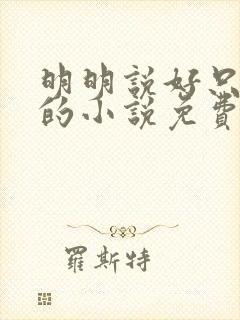 明明說好只
的小說免費
羅斯特